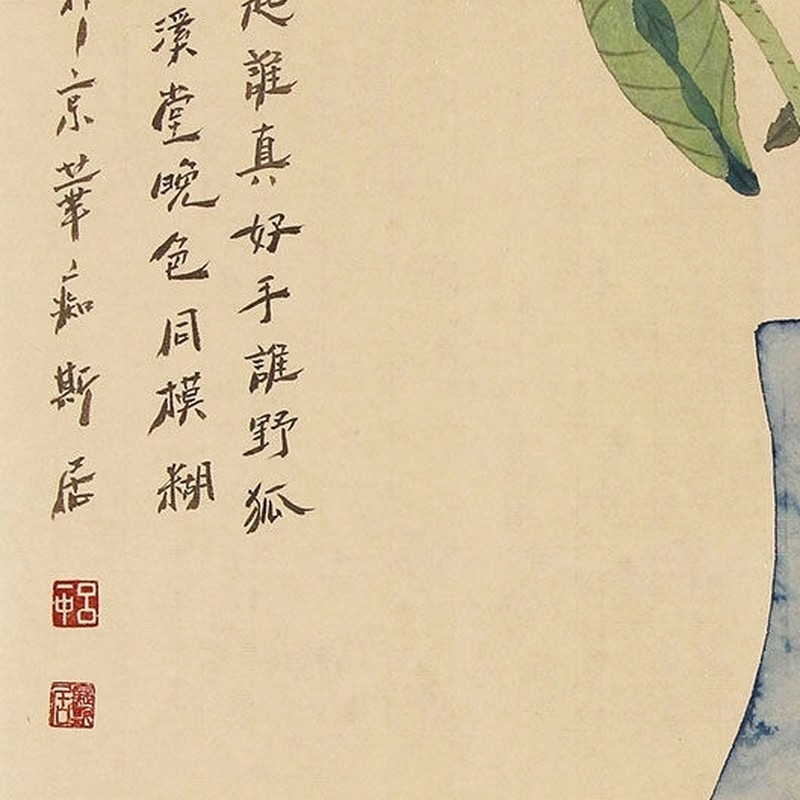 起誰真好手誰野狐
溪堂晚色同模糊
於京華痴斯居